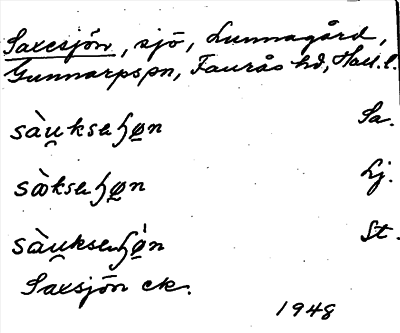 Saxesjön, sjö, Lunnagård,
Gunnarpspn, Faurås hd, Hall. l.
sàu̯kseɧø̲n Sa.
sɷ̀kseɧø̲n Lj.
sàu̯kseɧø̲̀n St.
Saxsjön ek.
1948